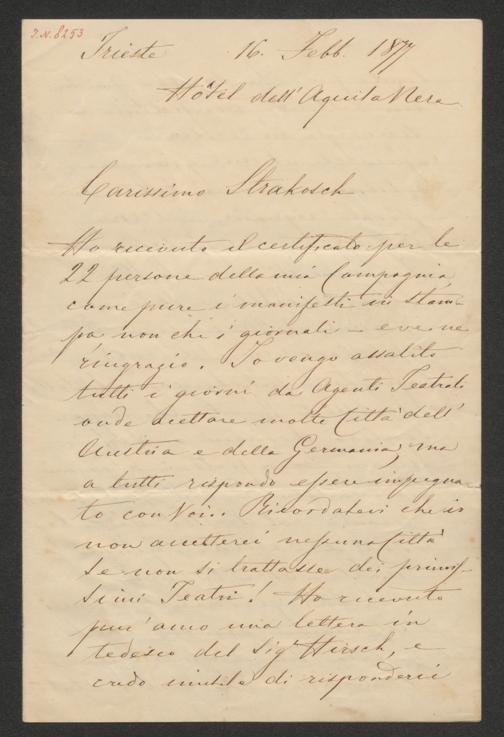 I.N. 8253
Trieste 16. Febb. 1877
Hôtel dell'Aquila Nera
Carissimo Strakosch
Ho ricevuto il certificato per le
22 persone della mia Compagnia,
come pure i manifesti in stam-
pa non chè i giornali – e ve ne
ringrazio. Io vengo assalito
tutti i giorni da Agenti Teatrali
onde accettare molte Città dell'
Austria e della Germania, ma
a tutti rispondo essere impegna-
to con Voi. Ricordatevi che io
non accetterei nessuna Città
se non si trattasse dei primis-
simi Teatri! Ho ricevuto
pur'anco una lettera in
tedesco del Sigr Hirsch, e
credo inutile di risponderci